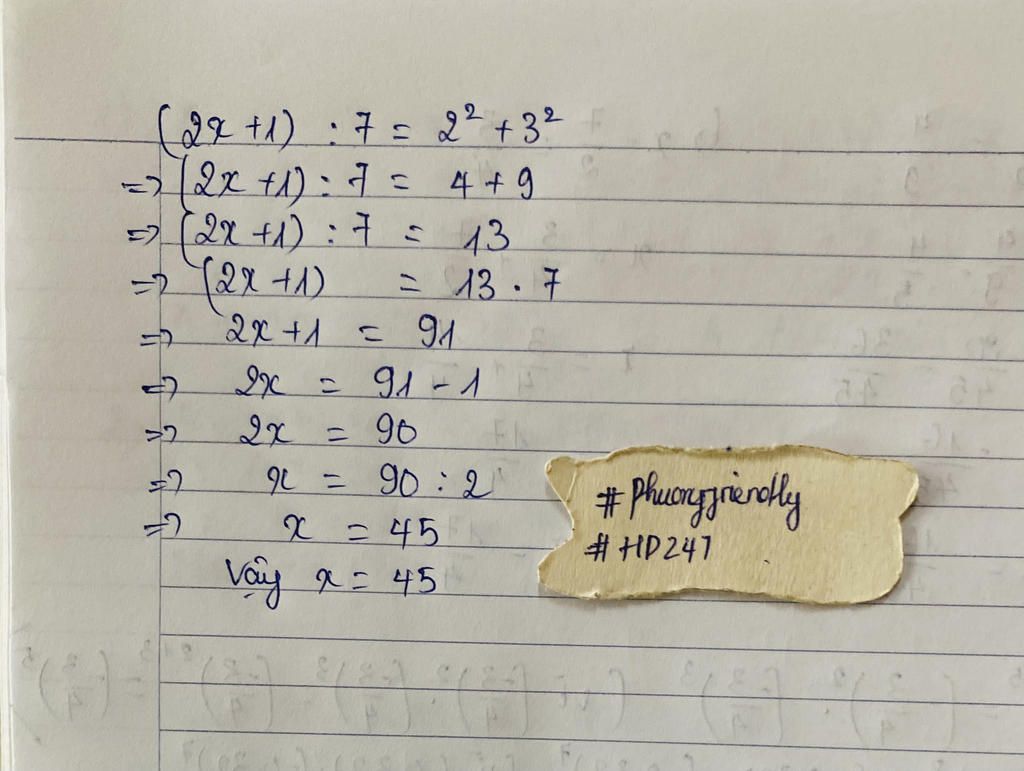 (2x+1) : 7 = 2² + 3²
=> (2x+1) : 7 = 4 + 9
=> (2x+1) : 7 = 13
=> (2x+1) = 13 . 7
=> 2x+1 = 91
=> 2x = 91 - 1
=> 2x = 90
=> x = 90 : 2
=> x = 45
Vậy x = 45
# Phuongfriendly
# HD247